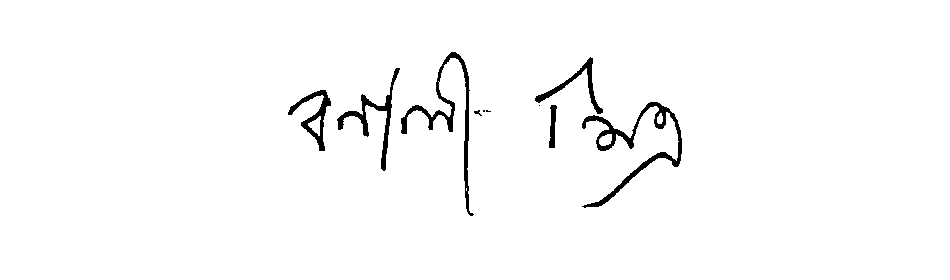 বনানী মিত্র